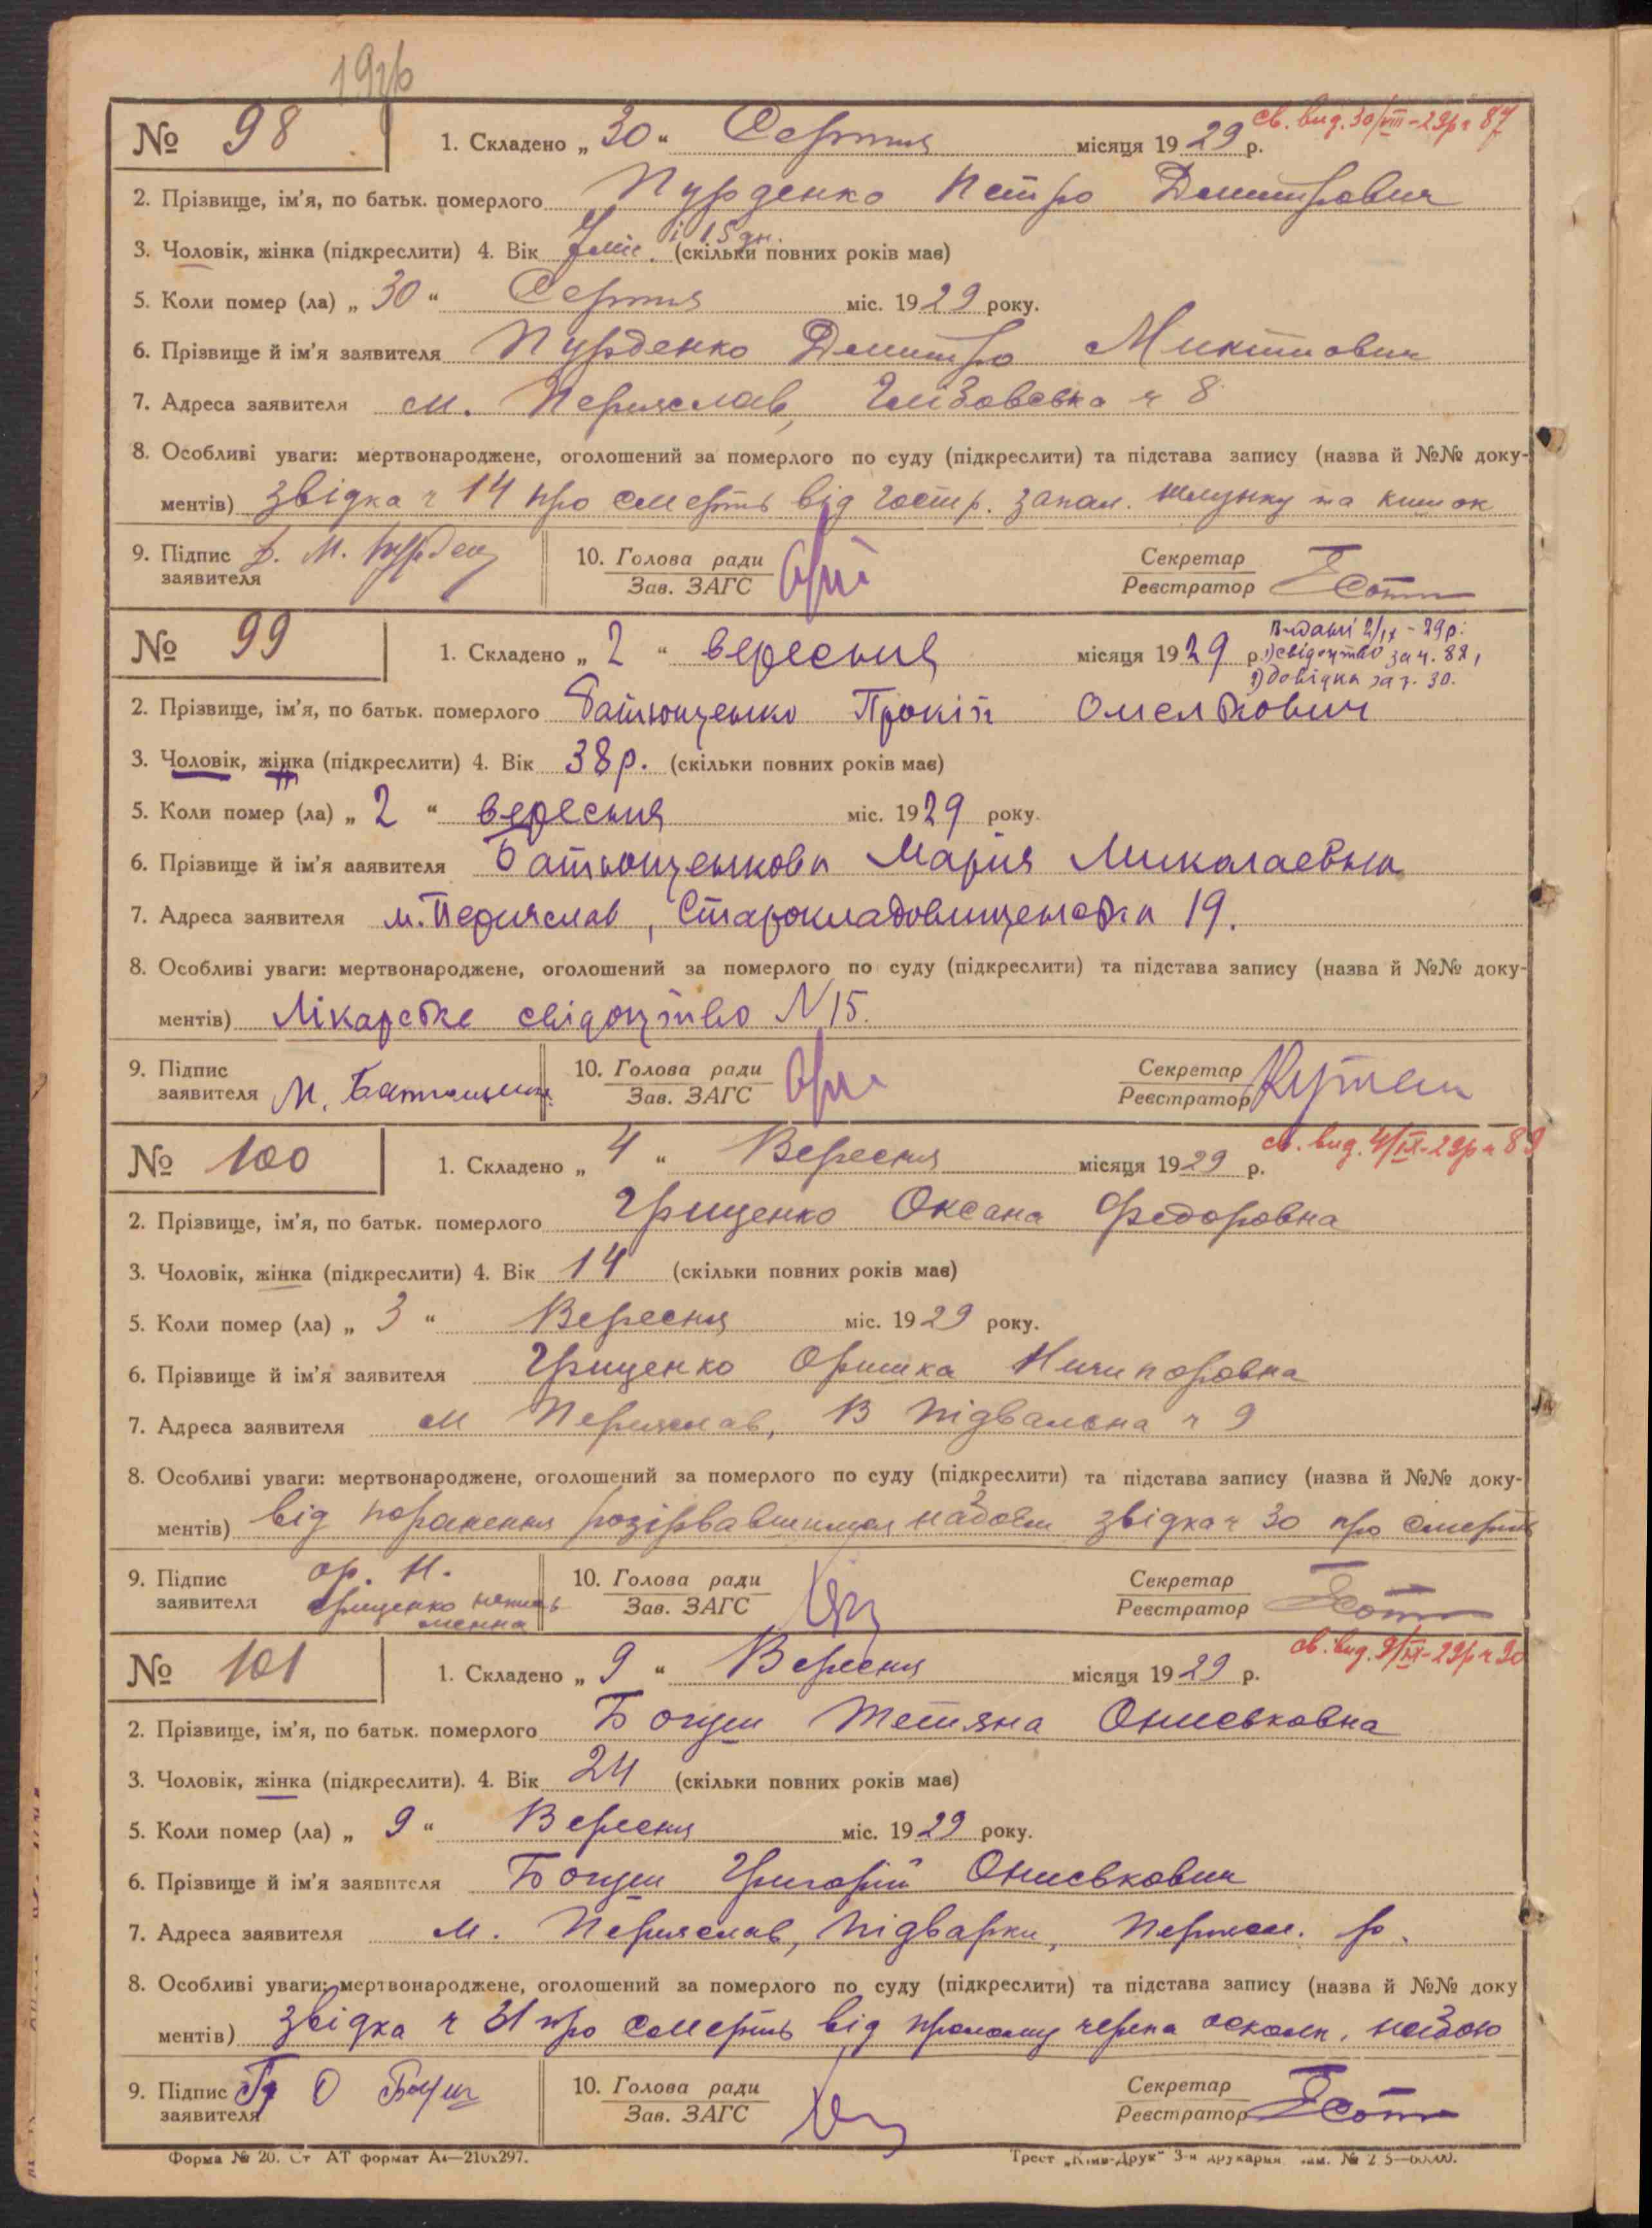 № 98
1. Складено „ 30 “ Серпня місяця 19 29 р.
св. вид. 30/VIII-29р ч 87
2. Прізвище, ім'я, по батьк. померлого Пурденко Петро Дмитрович
3. Чоловік, жінка (підкреслити) 4. Вік 7 міс. і 15 дн. (скільки повних років має)
5. Коли помер (ла) „ 30 “ Серпня міс. 19 29 року.
6. Прізвище й ім'я заявителя Пурденко Дмитро
7. Адреса заявителя м. Переяслав, ч 8
8. Особливі уваги: мертвонароджене, оголошений за померлого по суду (підкреслити) та підстава запису (назва й №№ доку-
ментів) звідка ч 14 про смерть від гостр. запал. шлунку та кишок
9. Підпис заявителя
10. Голова ради
Зав. ЗАГС
Секретар
Реєстратор
№ 99
1. Складено „ 2 “ вересня місяця 19 29 р.
Видані 2/IX-29р.
1) свідоцтво за ч. 88,
2) довідка за ч. 30.
2. Прізвище, ім'я, по батьк. померлого Батющенко Прокіп Омелькович
3. Чоловік, жінка (підкреслити) 4. Вік 38 р. (скільки повних років має)
5. Коли помер (ла) „ 2 “ вересня міс. 19 29 року.
6. Прізвище й ім'я ааявителя Батющенкова Марія Миколаевна
7. Адреса заявителя м. Переяслав, Старокладовищенська 19.
8. Особливі уваги: мертвонароджене, оголошений за померлого по суду (підкреслити) та підстава запису (назва й №№ доку-
ментів) Лікарське свідоцтво N 15.
9. Підпис
заявителя М.
10. Голова ради
Зав. ЗАГС
Секретар
Реєстратор
№ 100
1. Складено „ 4 “ Вересня місяця 19 29 р.
св. вид. 4/IX-29р ч 89
2. Прізвище, ім'я, по батьк. померлого Грищенко Оксана Федоровна
3. Чоловік, жінка (підкреслити) 4. Вік 14 (скільки повних років має)
5. Коли помер (ла) „ 3 “ Вересня міс. 19 29 року.
6. Прізвище й ім'я заявителя Грищенко Оришка Ничипоровна
7. Адреса заявителя м Переяслав, В Підвальна ч 9
8. Особливі уваги: мертвонароджене, оголошений за померлого по суду (підкреслити) та підстава запису (назва й №№ доку-
ментів) від поранення розірвавшимся набоєм звідка ч 30 про смерть
9. Підпис ор. Н.
заявителя Грищенко неписьменна
10. Голова ради
Зав. ЗАГС
Секретар
Реєстратор
№ 101
1. Складено „ 9 “ Вересня місяця 19 29 р.
св. вид. 9/IX-29р ч 90
2. Прізвище, ім'я, по батьк. померлого Боцун Тетяна Ониськовна
3. Чоловік, жінка (підкреслити). 4. Вік 24 (скільки повних років має)
5. Коли помер (ла) „ 9 “ Вересня міс. 19 29 року.
6. Прізвище й ім'я заявителя Боцун Григорій Ониськович
7. Адреса заявителя м. Переяслав, Підварки, р.
8. Особливі уваги: мертвонароджене, оголошений за померлого по суду (підкреслити) та підстава запису (назва й №№ доку
ментів) звідка ч 31 про смерть від пролому черепа осколк. набою
9. Підпис
заявителя
10. Голова ради
Зав. ЗАГС
Секретар
Реєстратор
Форма № 20. Ст АТ формат А4—210х297.
Трест „Київ-Друк“ 3-я друкарня